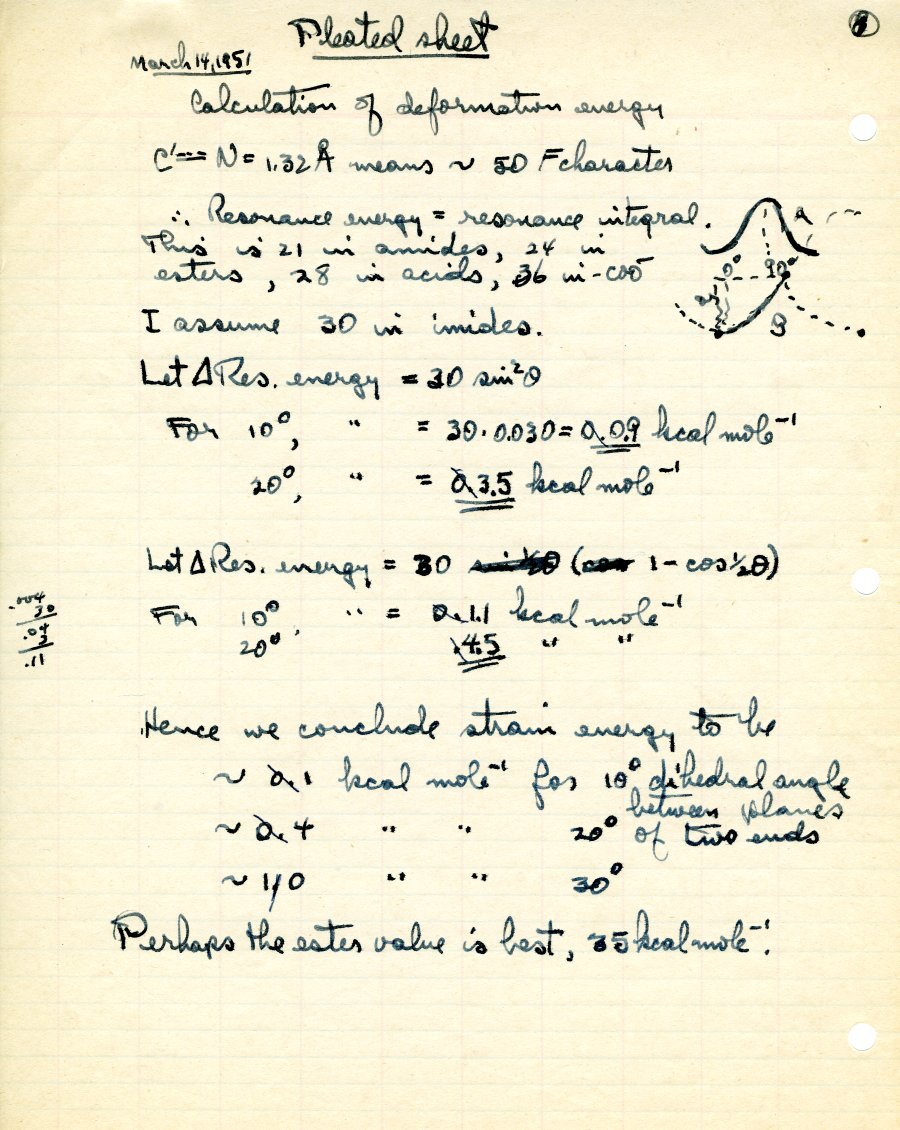 Pleated sheet
March 14, 1951
Calculation of deformation energy
C'=N = 1.32 Å means ~ 50 % character
∴ Resonance energy = resonance integral.
This is 21 in amides, 24 in
esters, 28 in acids, 36 in -COO⁻
I assume 30 in imides.
A
0° 90°
B
Let Δ Res. energy = 30 sin²θ
For 10°, " = 30·0.030 = 0.09 kcal mole⁻¹
20°, " = 0.3.5 kcal mole⁻¹
Let Δ Res. energy = 30 (1 - cos ½θ)
.004
30
.04
3
.11
For 10°, " = 0.1.1 kcal mole⁻¹
20° .4.5 " "
Hence we conclude strain energy to be
~ 0.1 kcal mole⁻¹ for 10° dihedral angle
between planes
~ 0.4 " " 20° of two ends
~ 1/0 " " 30°
Perhaps the ester value is best, 35 kcal mole⁻¹.